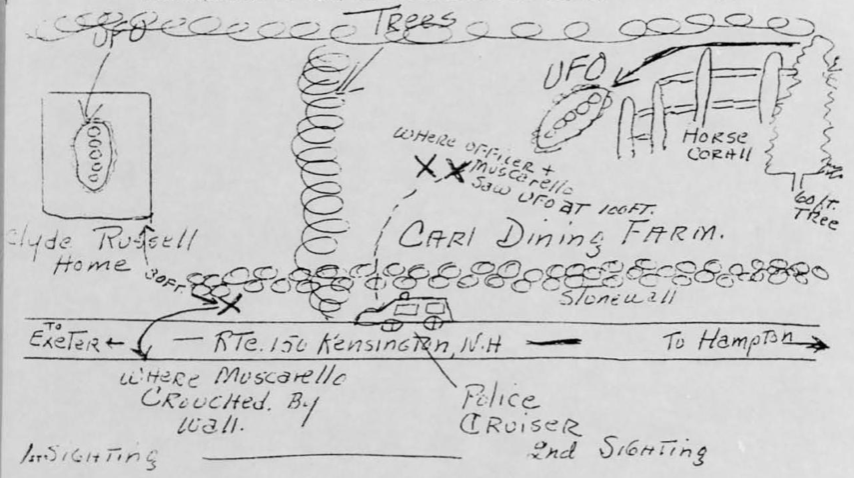 UFO
Trees
UFO
HORSE
CORAll
60 ft.
Tree
WHERE OFFICER +
MUSCARELLO
SAW UFO AT 100FT.
Clyde Russell
Home
CARl Dining FARM.
30FT.
Stonewall
TO
EXETER ←
RTE. 150 Kensington, N.H
To Hampton
WHERE MUSCARELLO
CROUCHED. By
Wall.
Police
CRUISER
2nd SIGHTING
1st SIGHTING